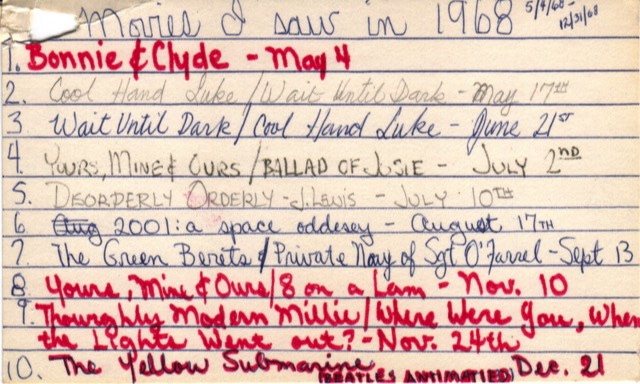 Movies I saw in 1968 5/4/68-
12/31/68
1. Bonnie & Clyde - May 4
2. Cool Hand Luke / Wait Until Dark - May 17th
3 Wait Until Dark / Cool Hand Luke - June 21st
4 Yours, Mine & Ours / BALLAD OF JOSIE - JULY 2nd
5. DISORDERLY ORDERLY - J. LEWIS - JULY 10TH
6 Aug 2001: a space oddesey - August 17TH
7 The Green Berets & Private Navy of Sgt O'Farrel - Sept 13
8 Yours, Mine & Ours / 8 on a Lam - Nov. 10
9. Thouroghly Modern Millie / Where Were You, When
the Lights Went out? - Nov. 24th
10. The Yellow Submarine (BEATLES ANTIMATIED) Dec. 21